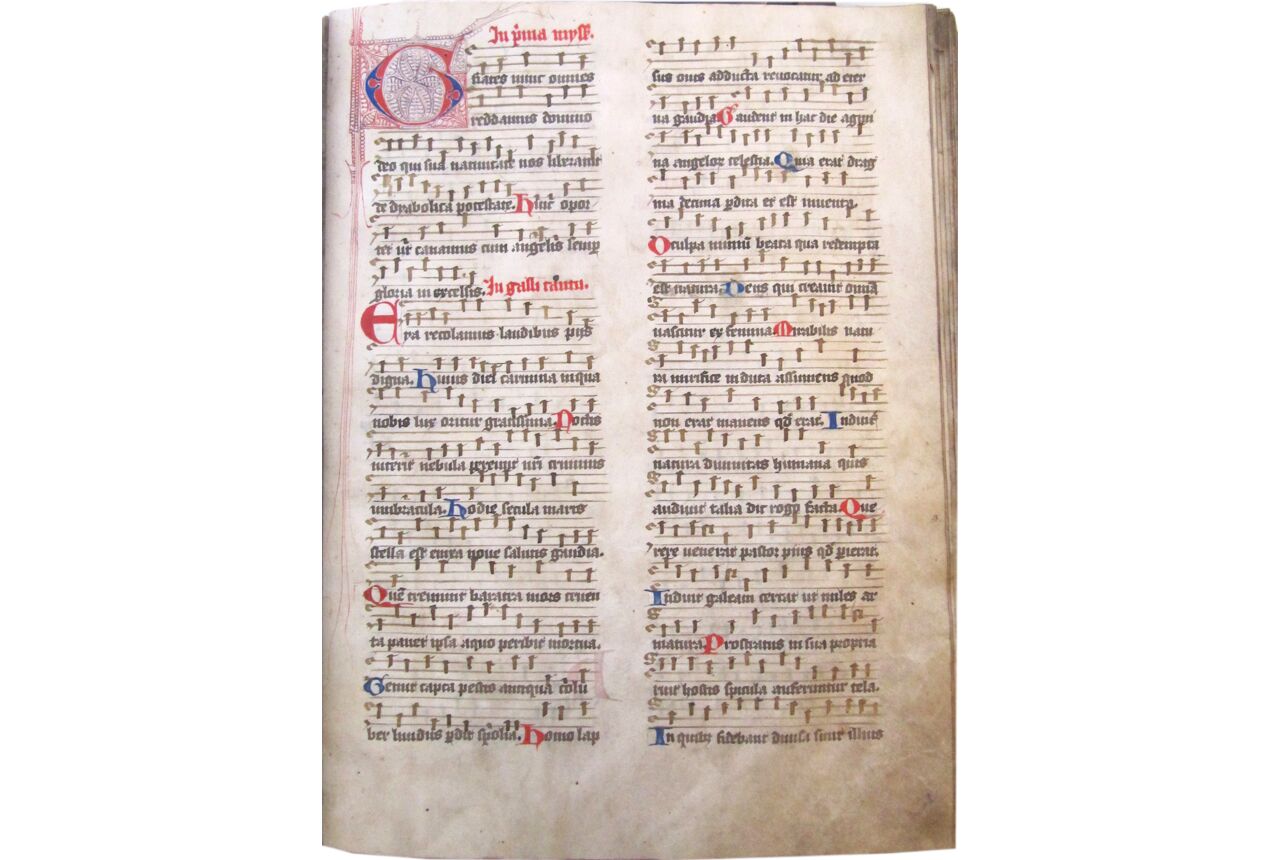 In p̄ma myss̄.
Grates nunc omnes
reddamus domino
deo qui sua natiuitate nos liberauit
de dyabolica potestate. Huic opor
tet ut canamus cum angelis semp̱
gloria in excelsis. In galli cātu.
Eya recolamus laudibus pijs
digna. Huius diei carmina in qua
nobis lux oritur gratissima. Noctis
interit nebula pereunt nr̄i criminis
umbracula. Hodie secula maris
stella est enixa noue salutis gaudia.
Quē tremunt baratra mors cruen
ta pauet ipsa a quo peribit mortua.
Gemit capta pestis antiqua colu
ber liuidus ꝑdit spolia. Homo lap
sus ouis adducta reuocatur ad eter
na gaudia Gaudent in hac die agmi
na angeloꝝ celestia. Quia erat drag
ma decima ꝑdita et est inuenta.
O culpa nimiū beata qua redempta
est natura. Deus qui creauit omīa
nascitur ex femina Mirabilis natu
ra mirifice induta assumens quod
non erat manens qd̄ erat. Induit̄
natura diuinitas humana quis
audiuit talia dic rogo facta. Que
rere venerat pastor pius qd̄ ꝑierat.
Induit galeam certat ut miles ar
matura. Prostratus in sua propria
ruit hostis spicula auferuntur tela.
In quibꝫ fidebat diuisa sunt illius